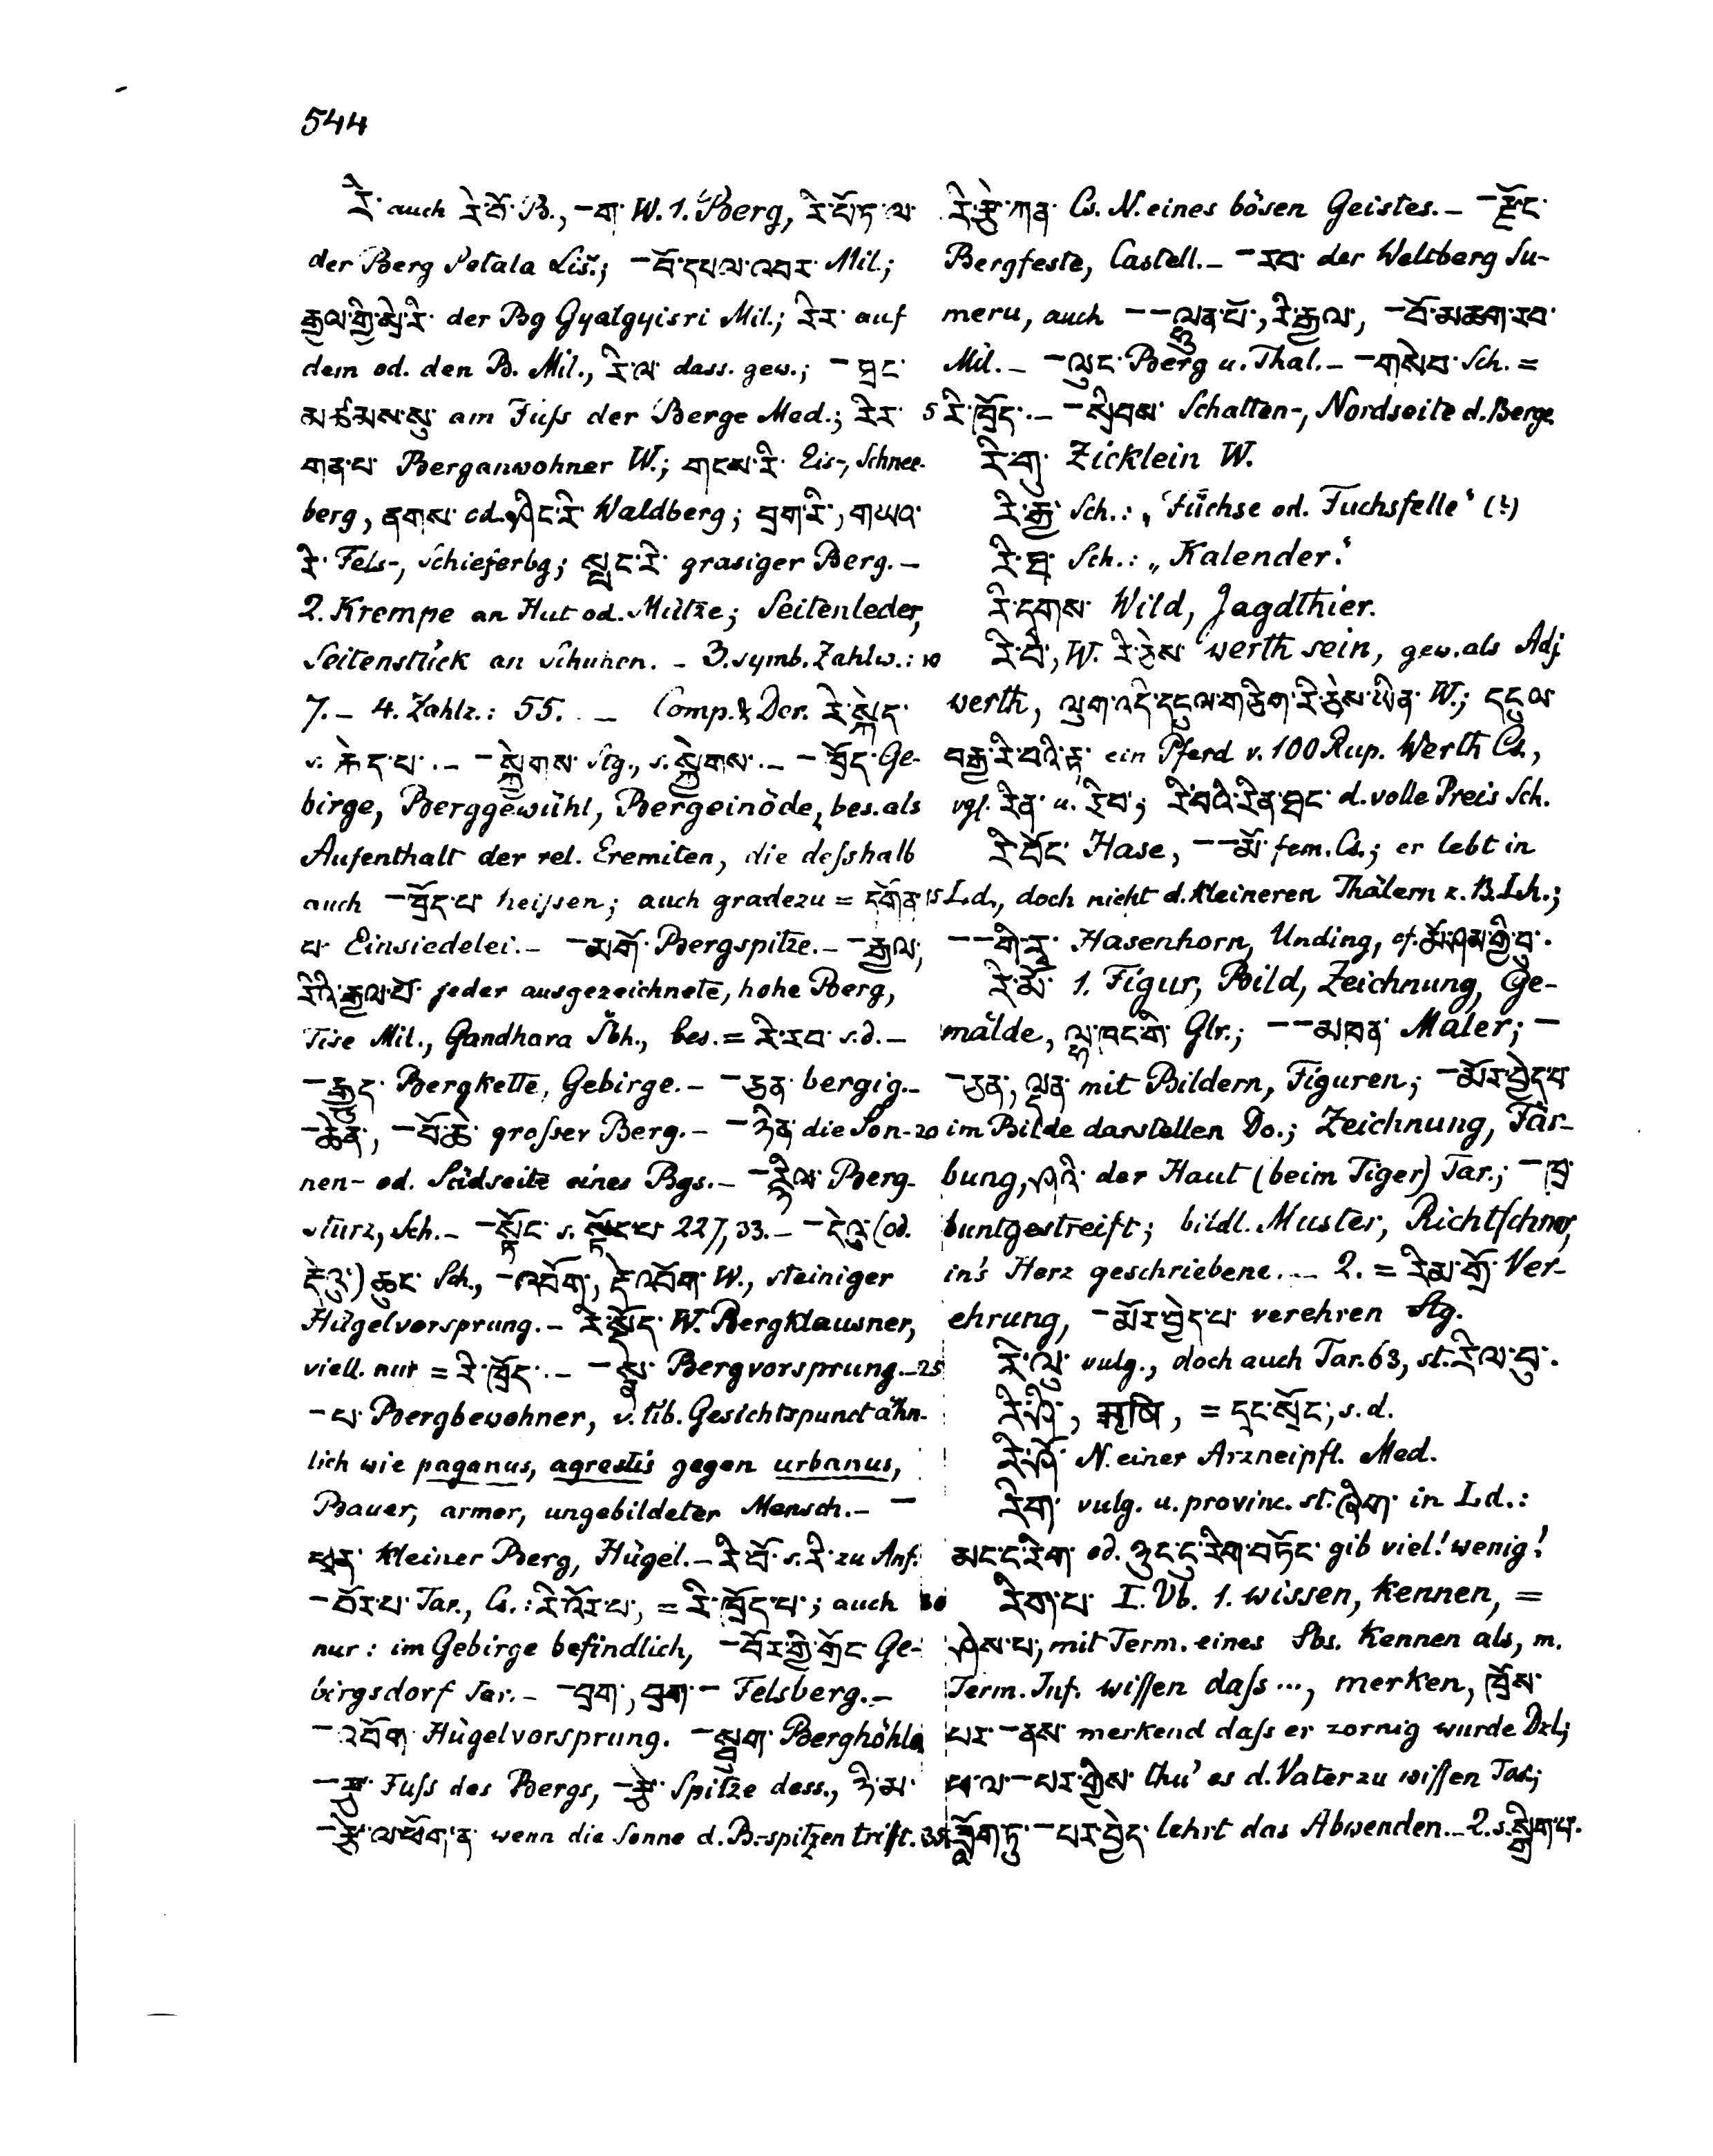 544
རི་ auch རི་བོ་ B., –ག་ W. 1. Berg, རི་པོ་ཏ་ལ་
der Berg Potala Liš.; –བོ་དཔལ་འབར་ Mil.;
རྒྱལ་གྱི་སྲི་རི་ der Bg Gyalgyisri Mil.; རིར་ auf
dem od. den B. Mil., རི་ལ་ dass. gew.; –ཐང་
མཚམས་སུ་ am Fuſs der Berge Med.; རིར་
གན་པ་ Berganwohner W.; གངས་རི་ Eis-, Schnee-
berg, ནགས་ od. ཤིང་རི་ Waldberg; བྲག་རི་, གཡའ་
རི་ Fels-, Schieferbg; སྤང་རི་ grasiger Berg. –
2. Krempe an Hut od. Mütze; Seitenleder,
Seitenstück an Schuhen. – 3. symb. Zahlw.: 10
7. – 4. Zahlz.: 55. – Comp. & Der. རི་སྐེད་
s. རྐེད་པ་. – –སྐྱེགས་ Stg., s. སྐྱེགས་. – –ཁྲོད་ Ge-
birge, Berggewühl, Bergeinöde, bes. als
Aufenthalt der rel. Eremiten, die deſshalb
auch –ཁྲོད་པ་ heiſsen; auch gradezu = དགོན་ 15
པ་ Einsiedelei. – –མགོ་ Bergspitze. – –རྒྱལ,
རིའི་རྒྱལ་པོ་ jeder ausgezeichnete, hohe Berg,
Tise Mil., Gandhara Sbh., bes. = རི་རབ་ s.d. –
–རྒྱུད་ Bergkette, Gebirge. – –ཅན་ bergig. –
–ཆེན་, –བོ་ཆེ་ groſser Berg. – –ཉིན་ die Son- 20
nen- od. Südseite eines Bgs. – –རྙིལ་ Berg-
sturz, Sch. – –སྟོང་ s. སྟོང་པ་ 227,33. – –དེའུ་ (od.
རྡེའུ་) ཆུང་ Sch., –འབོག་, རྡེ་འབོག་ W., steiniger
Hügelvorsprung. – རི་སྤྱོད་ W. Bergklausner,
viell. nur = རི་ཁྲོད་. – –སྣ་ Bergvorsprung. – 25
–པ་ Bergbewohner, v. tib. Gesichtspunct ähn-
lich wie paganus, agrestis gegen urbanus,
Bauer, armer, ungebildeter Mensch. – –
ཕྲན་ kleiner Berg, Hügel. – རི་བོ་ s. རི་ zu Anf.
–བོར་པ་ Tar., Cs.: རི་འོར་པ་, = རི་ཁྲོད་པ་; auch 30
nur: im Gebirge befindlich, –བོར་གྱི་གྲོང་ Ge-
birgsdorf Tar. – –བྲག་, བྲག་– Felsberg. –
–འབོག་ Hügelvorsprung. –སྦུག་ Berghöhle
–རྩ་ Fuſs des Bergs, –རྩེ་ Spitze dess., ཉི་མ་
–རྩེ་ལ་ཕོག་ན་ wenn die Sonne d. B.-spitzen trifft. 35
རི་རྩེ་ཀན་ Cs. N. eines bösen Geistes. – –རྫོང་
Bergfeste, Castell. – –རབ་ der Weltberg Su-
meru, auch – –ལྷུན་པོ་, རི་རྒྱལ་, –བོ་མཆོག་རབ་
Mil. – –ལུང་ Berg u. Thal. – –གསེབ་ Sch. =
5 རི་ཁྲོད་. – –སྲིབས་ Schatten-, Nordseite d. Berge
རི་གུ་ Zicklein W.
རི་རྒྱ་ Sch.: „Füchse od. Fuchsfelle“ (?)
རི་ཐ་ Sch.: „Kalender.“
རི་དགས་ Wild, Jagdthier.
རི་བ་, W. རི་ཅེས་ werth sein, gew. als Adj.
werth, ལུག་འདི་དངུལ་གཅིག་རི་ཅེས་ཡིན་ W.; དངུལ་
བརྒྱ་རི་བའི་རྟ་ ein Pferd v. 100 Rup. Werth Cs.,
vgl. རིན་ u. རིབ་; རི་བའི་རིན་ཐང་ d. volle Preis Sch.
རི་བོང་ Hase, – –མོ་ fem. Cs.; er lebt in
Ld., doch nicht d. kleineren Thälern z. B. Lh.;
– –གི་རྭ་ Hasenhorn, Unding, cf. མོ་ཤམ་གྱི་བུ་.
རི་མོ་ 1. Figur, Bild, Zeichnung, Ge-
mälde, ལྷ་ཁང་གི་ Glr.; – –མཁན་ Maler; –
–ཅན་, ལྡན་ mit Bildern, Figuren; –མོར་བྱེད་པ་
im Bilde darstellen Do.; Zeichnung, Fär-
bung, ཤའི་ der Haut (beim Tiger) Tar.; –ཁྲ་
buntgestreift; bildl. Muster, Richtſchnur,
in's Herz geschriebene. – 2. = རིམ་གྲོ་ Ver-
ehrung, –མོར་བྱེད་པ་ verehren Stg.
རི་ལུ་ vulg., doch auch Tar. 63, st. རིལ་བུ་.
རི་ཥི་, ऋषि, = དྲང་སྲོང་, s. d.
རི་ཤོ་ N. einer Arzneipfl. Med.
རིག་ vulg. u. provinc. st. ཞིག་ in Ld.:
མང་ང་རིག་ od. ཉུང་ངུ་རིག་བཏོང་ gib viel! wenig!
རིག་པ་ I. Vb. 1. wissen, kennen, =
ཤེས་པ་, mit Term. eines Sbs. kennen als, m.
Term. Inf. wiſſen daſs ..., merken, ཁྲོས་
པར་–ནས་ merkend daſs er zornig wurde Dzl.;
ཕ་ལ་–པར་གྱིས་ thu' es d. Vater zu wiſſen Tar.;
ཟློག་ཏུ་–པར་བྱེད་ lehrt das Abwenden. – 2. s. སྒྲིག་པ་.